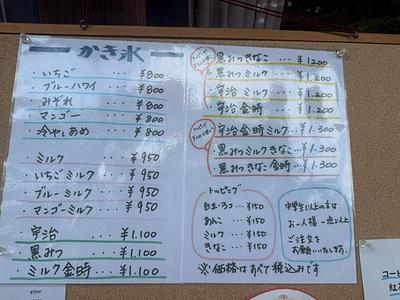 かき氷
・いちご ・・・ ¥800
・ブルーハワイ ¥800
・みぞれ ・・・ ¥800
・マンゴー ¥800
・冷やしあめ ¥800
・ミルク ・・・ ¥950
・いちごミルク ¥950
・ブルーミルク ¥950
・マンゴーミルク ¥950
・宇治 ・・・ ¥1.100
・黒みつ ・・・ ¥1.100
・ミルク金時 ・・・ ¥1.100
黒みつきなこ ・・・ ¥1200
黒みつミルク ・・・ ¥1.200
宇治ミルク ・・・ ¥1.200
宇治金時 ・・・ ¥1.200
宇治金時ミルク ・・・ ¥1.300
黒みつミルクきなこ ・・・ ¥1.300
黒みつきなこ金時 ・・・ ¥1.300
トッピング
白玉・2コ ・・・ ¥150
あんこ ・・・ ¥150
ミルク ・・・ ¥150
きなこ ・・・ ¥150
中学生以上の方は
お一人様一点以上
ご注文を
お願いいたします。
※価格はすべて税込みです
コート